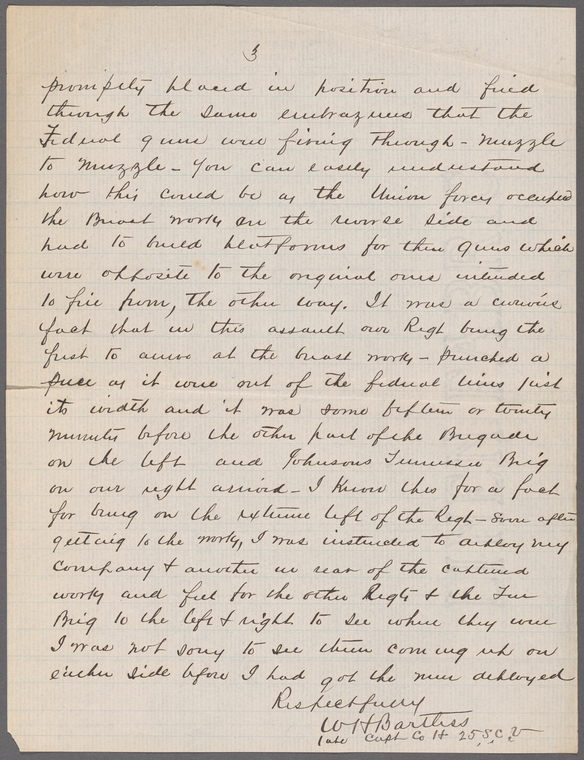 3
promptly placed in position and fired
through the same embrazures that the
Federal guns were firing through - muzzle
to muzzle - You can easily understand
how this could be as the Union forces occupied
the Breast works on the reverse side and
had to build platforms for their guns which
were opposite to the original ones intended
to fire from, the other way. It was a curious
fact that in this assault our Regt being the
first to arrive at the breast works - punched a
piece as it were out of the federal lines just
its width and it was some fifteen or twenty
minutes before the other part of the Brigade
on the left and Johnsons Tennessee Brig
on our right arrived - I Know this for a fact
for being on the extreme left of the Regt - soon after
getting to the works, I was instructed to deploy my
Company & another in rear of the captured
works and feel for the other Regts & the Ten
Brig to the left & right to see where they were
I was not sorry to see them coming up on
either side before I had got the men deployed
Respectfully
W H Bartless
late Capt Co H 25 S.C.V